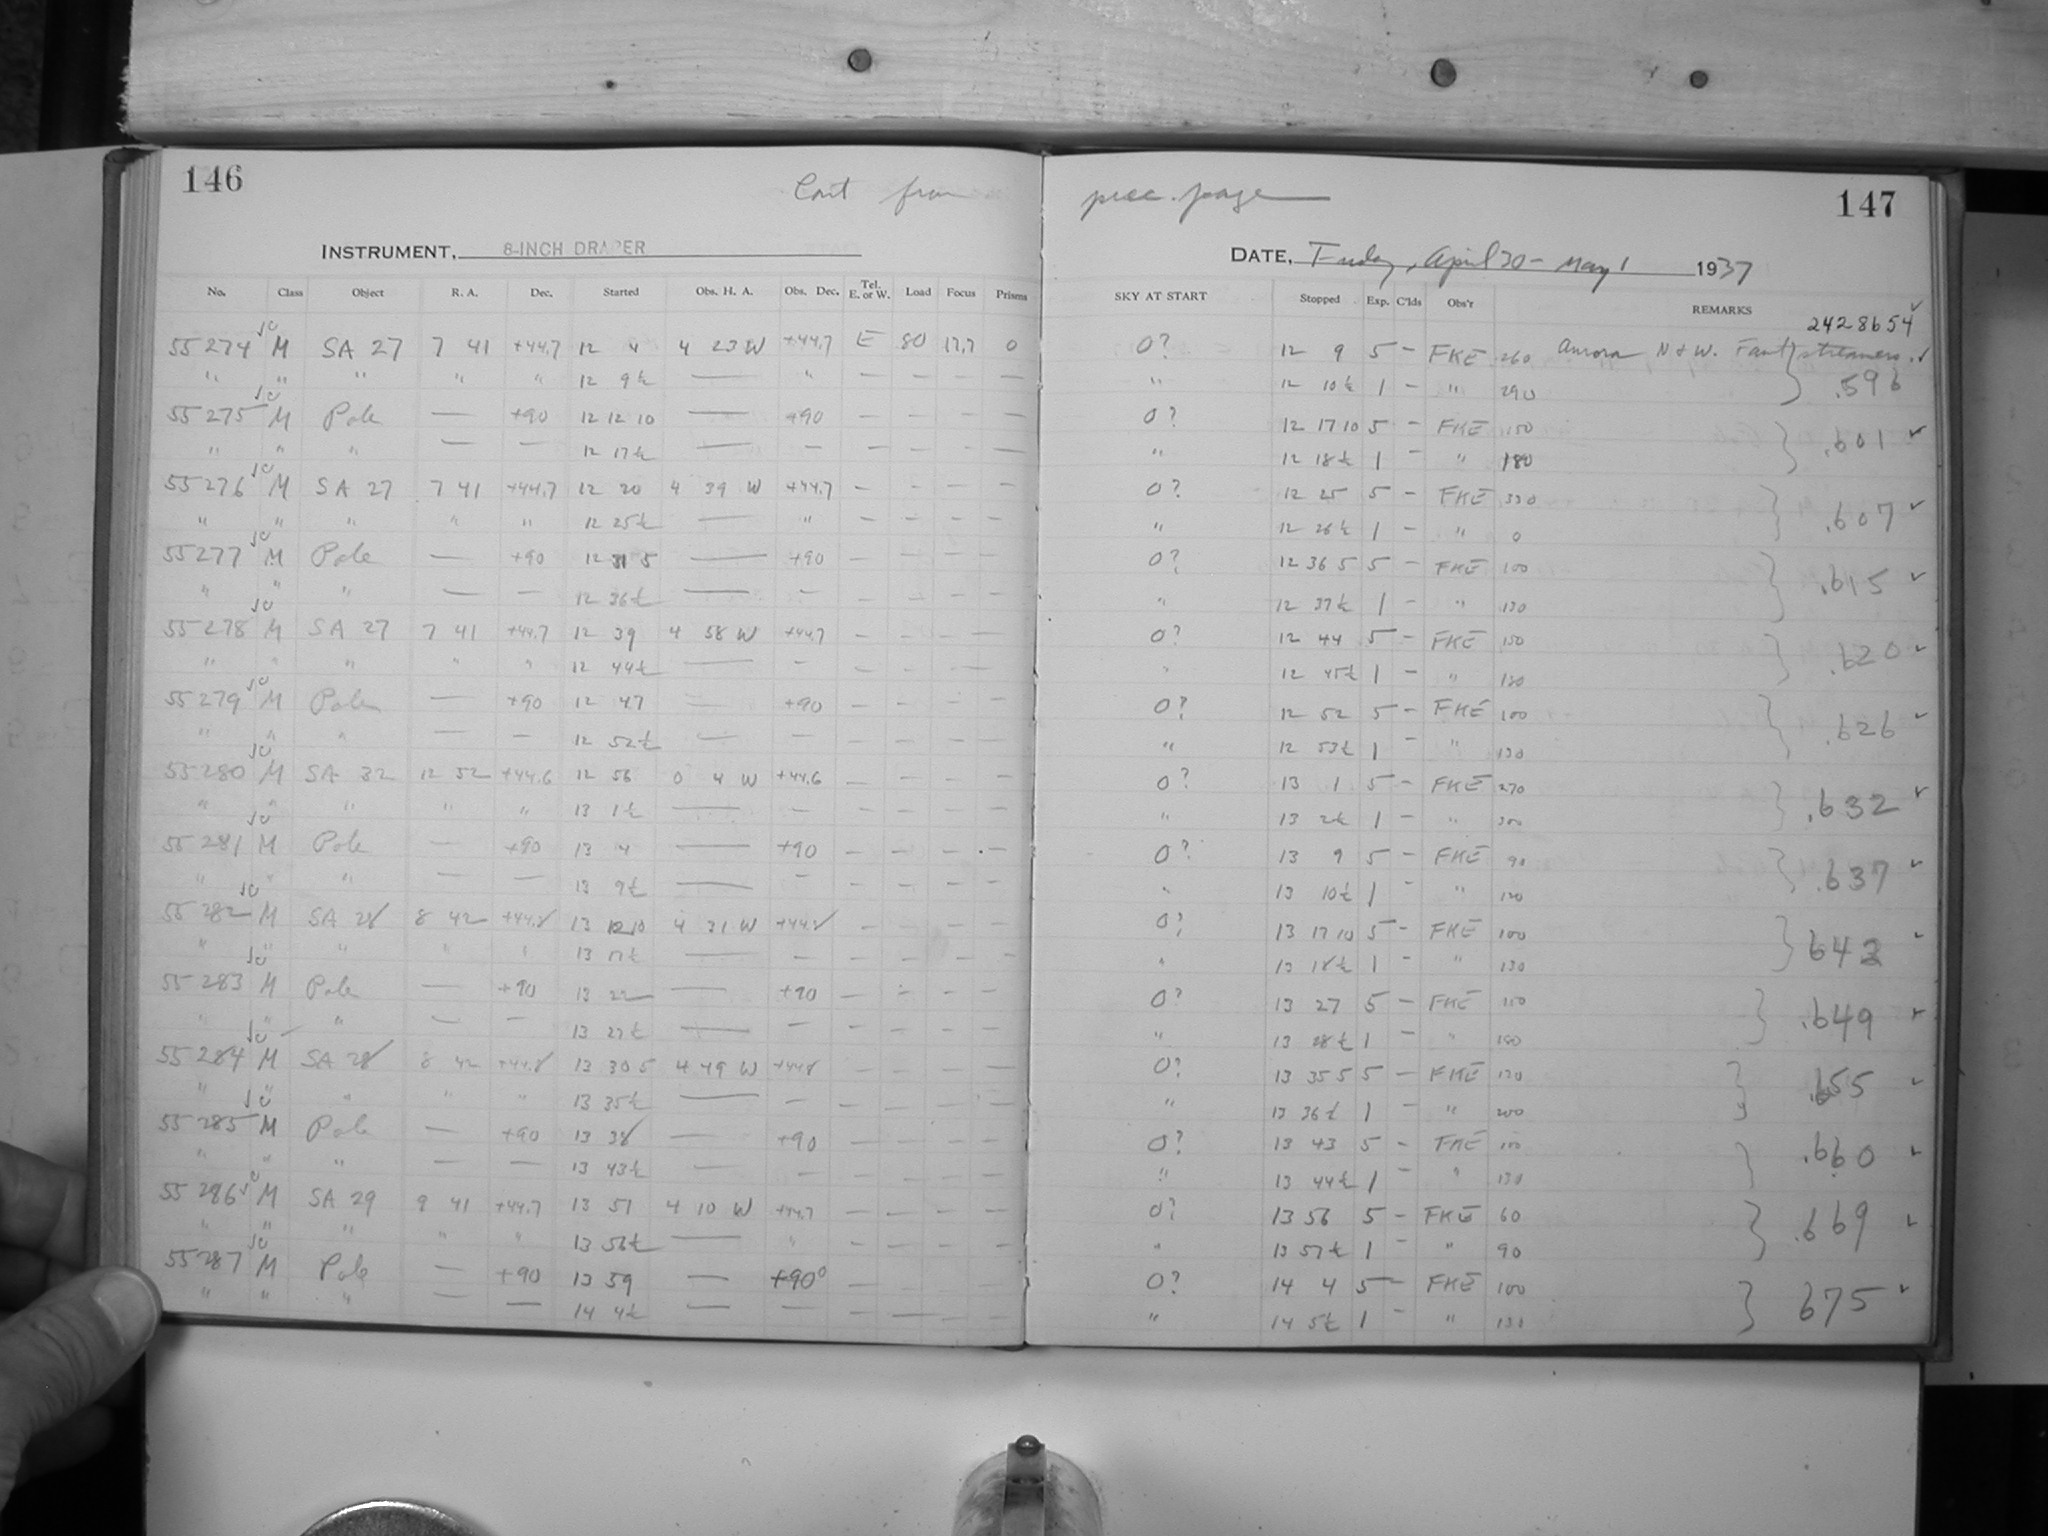 146
Cont from prec. page
147
INSTRUMENT, 8-INCH DRAPER
DATE, Friday, April 30 - May 1 1937
No. Class Object R. A. Dec. Started Obs. H. A. Obs. Dec. Tel. E. or W. Load Focus Prisms SKY AT START Stopped Exp. C'lds Obs'r REMARKS
2428654 ✓
55274 M SA 27 7 41 +44.7 12 4 4 23 W +44.7 E 80 17.7 0 0? 12 9 5 — FKE 260 Aurora N & W. Faint streamers. ✓
" " " " " 12 9½ — " — — — — " 12 10½ 1 — " 290 } .596
55275 M Pole — +90 12 12 10 — +90 — — — — 0? 12 17 10 5 — FKE 150
" " " — — 12 17½ — — — — — — " 12 18½ 1 — " 180 } .601 ✓
55276 M SA 27 7 41 +44.7 12 20 4 39 W +44.7 — — — — 0? 12 25 5 — FKE 330
" " " " " 12 25½ — " — — — — " 12 26½ 1 — " 0 } .607 ✓
55277 M Pole — +90 12 31 5 — +90 — — — — 0? 12 36 5 5 — FKE 100
" " " — — 12 36½ — — — — — — " 12 37½ 1 — " 130 } .615 ✓
55278 M SA 27 7 41 +44.7 12 39 4 58 W +44.7 — — — — 0? 12 44 5 — FKE 150
" " " " " 12 44½ — — — — — — " 12 45½ 1 — " 180 } .620 ✓
55279 M Pole — +90 12 47 — +90 — — — — 0? 12 52 5 — FKE 100
" " " — — 12 52½ — — — — — — " 12 53½ 1 — " 130 } .626 ✓
55280 M SA 32 12 52 +44.6 12 56 0 4 W +44.6 — — — — 0? 13 1 5 — FKE 270
" " " " " 13 1½ — — — — — — " 13 2½ 1 — " 300 } .632 ✓
55281 M Pole — +90 13 4 — +90 — — — — 0? 13 9 5 — FKE 90
" " " — — 13 9½ — — — — — — " 13 10½ 1 — " 120 } .637 ✓
55282 M SA 28 8 42 +44.8 13 12 10 4 31 W +44.8 — — — — 0? 13 17 10 5 — FKE 100
" " " " " 13 17½ — — — — — — " 13 18½ 1 — " 130 } 643 ✓
55283 M Pole — +90 13 22 — +90 — — — — 0? 13 27 5 — FKE 150
" " " — — 13 27½ — — — — — — " 13 28½ 1 — " 180 } .649 ✓
55284 M SA 28 8 42 +44.8 13 30 5 4 49 W +44.8 — — — — 0? 13 35 5 5 — FKE 170
" " " " " 13 35½ — — — — — — " 13 36½ 1 — " 200 } .655 ✓
55285 M Pole — +90 13 38 — +90 — — — — 0? 13 43 5 — FKE 100
" " " — — 13 43½ — — — — — — " 13 44½ 1 — " 130 } .660 ✓
55286 M SA 29 9 41 +44.7 13 51 4 10 W +44.7 — — — — 0? 13 56 5 — FKE 60
" " " " " 13 56½ — " — — — — " 13 57½ 1 — " 90 } .669 ✓
55287 M Pole — +90 13 59 — +90° — — — — 0? 14 4 5 — FKE 100
" " " — — 14 4½ — — — — — — " 14 5½ 1 — " 130 } 675 ✓